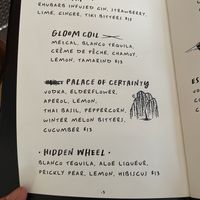 RHUBARB INFUSED GIN, STRAWBERRY,
LIME, GINGER, TIKI BITTERS $13
GLOOM COIL
MEZCAL, BLANCO TEQUILA,
CRÈME DE PÊCHE, CHAMOY,
LEMON, TAMARIND $13
PALACE OF CERTAINTY
VODKA, ELDERFLOWER,
APEROL, LEMON,
THAI BASIL, PEPPERCORN,
WINTER MELON BITTERS,
CUCUMBER $13
· HIDDEN WHEEL ·
BLANCO TEQUILA, ALOE LIQUEUR,
PRICKLY PEAR, LEMON, HIBISCUS $13